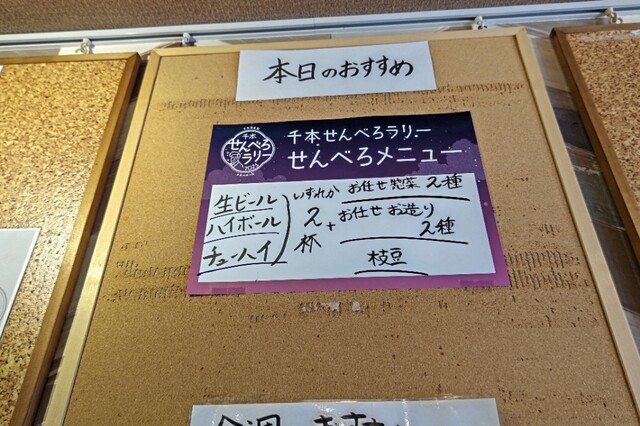 本日のおすすめ
千本
せんべろ
ラリー
千本せんべろラリー
せんべろメニュー
生ビール
ハイボール
チューハイ
いずれか
2
杯
+
お任せ惣菜 2種
お任せ お造り
2種
枝豆